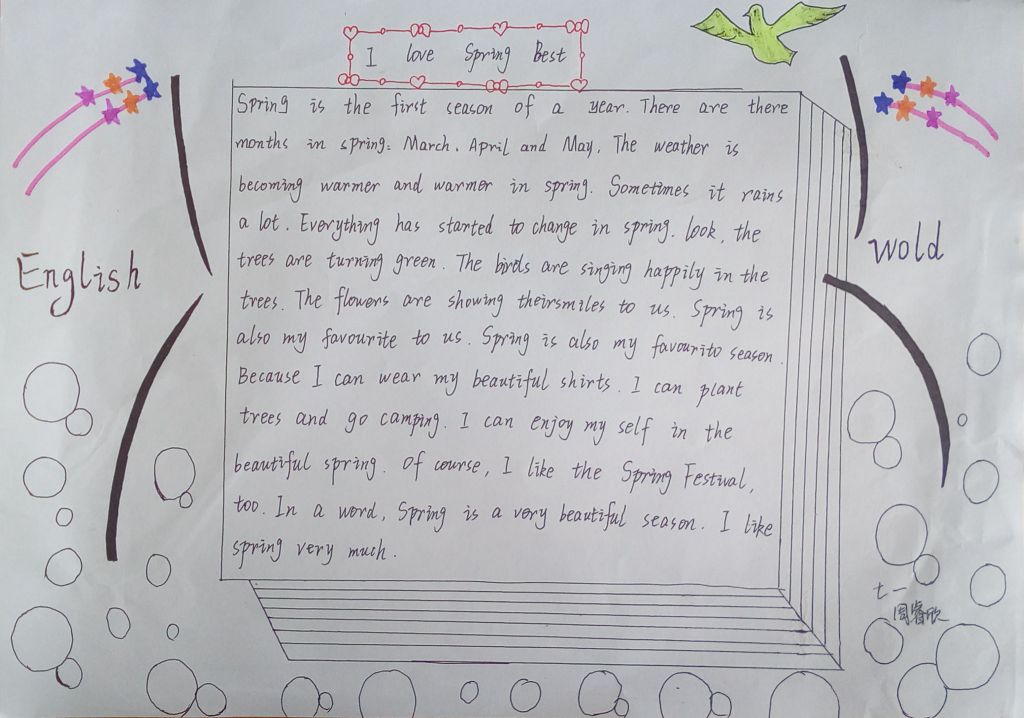 I love Spring Best
Spring is the first season of a year. There are there
months in spring: March. April and May. The weather is
becoming warmer and warmer in spring. Sometimes it rains
a lot. Everything has started to change in spring. look, the
trees are turning green. The birds are singing happily in the
trees. The flowers are showing theirsmiles to us. Spring is
also my favourite to us. Spring is also my favourito season.
Because I can wear my beautiful shirts. I can plant
trees and go camping. I can enjoy my self in the
beautiful spring. Of course, I like the Spring Festival,
too. In a word, Spring is a very beautiful season. I like
spring very much.
English
wold
七一
周睿欣